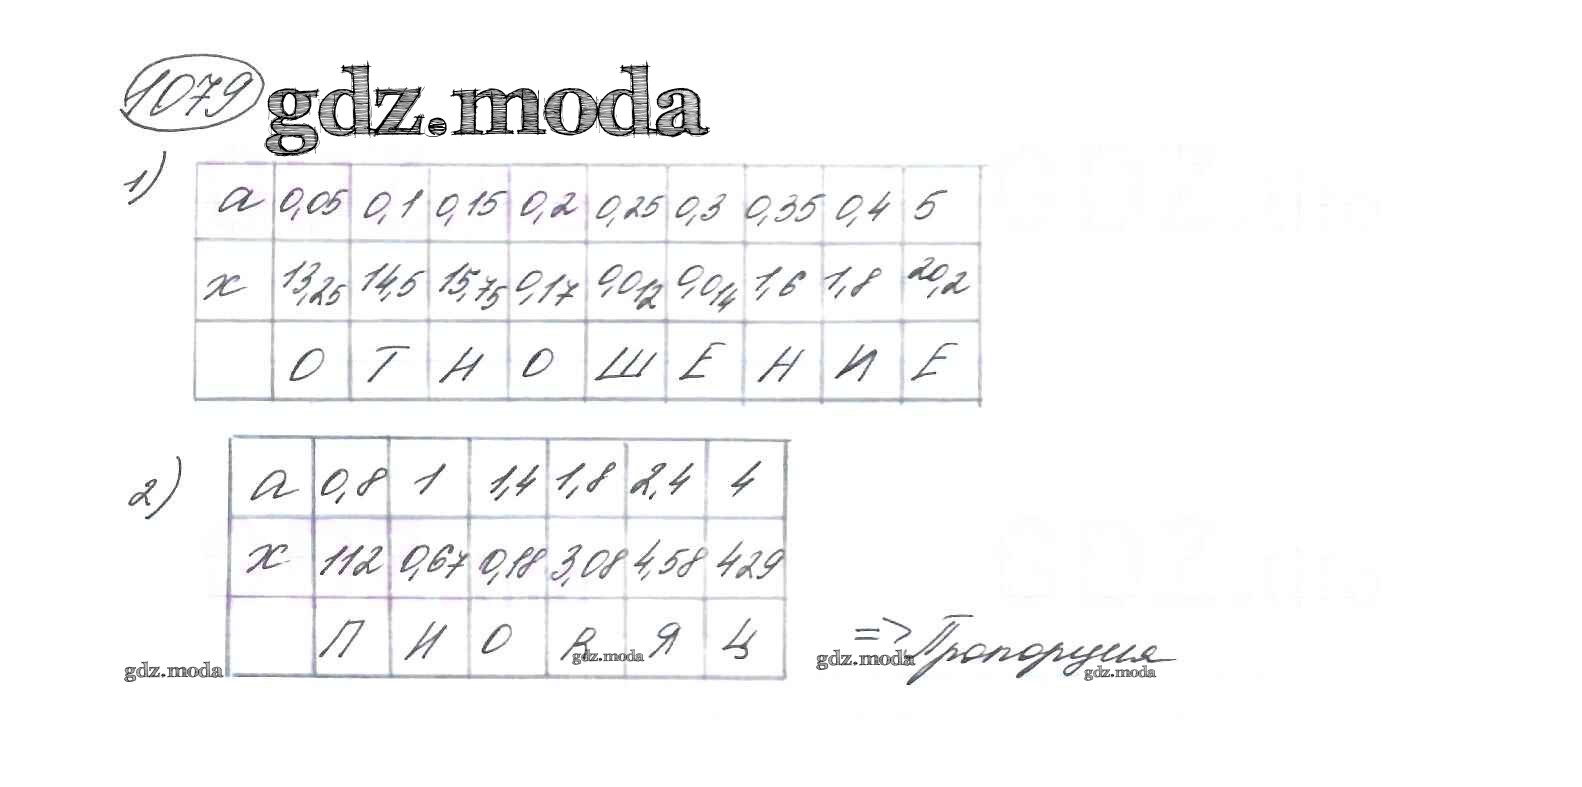 1079 gdz.moda
1)
а 0,05 0,1 0,15 0,2 0,25 0,3 0,35 0,4 5
х 13,25 14,5 15,75 0,17 0,012 0,014 1,6 1,8 20,2
О Т Н О Ш Е Н И Е
2)
а 0,8 1 1,4 1,8 2,4 4
х 112 0,67 0,18 3,08 4,58 429
П И О Я Ц
=> Пропорция
gdz.moda gdz.moda gdz.moda gdz.moda